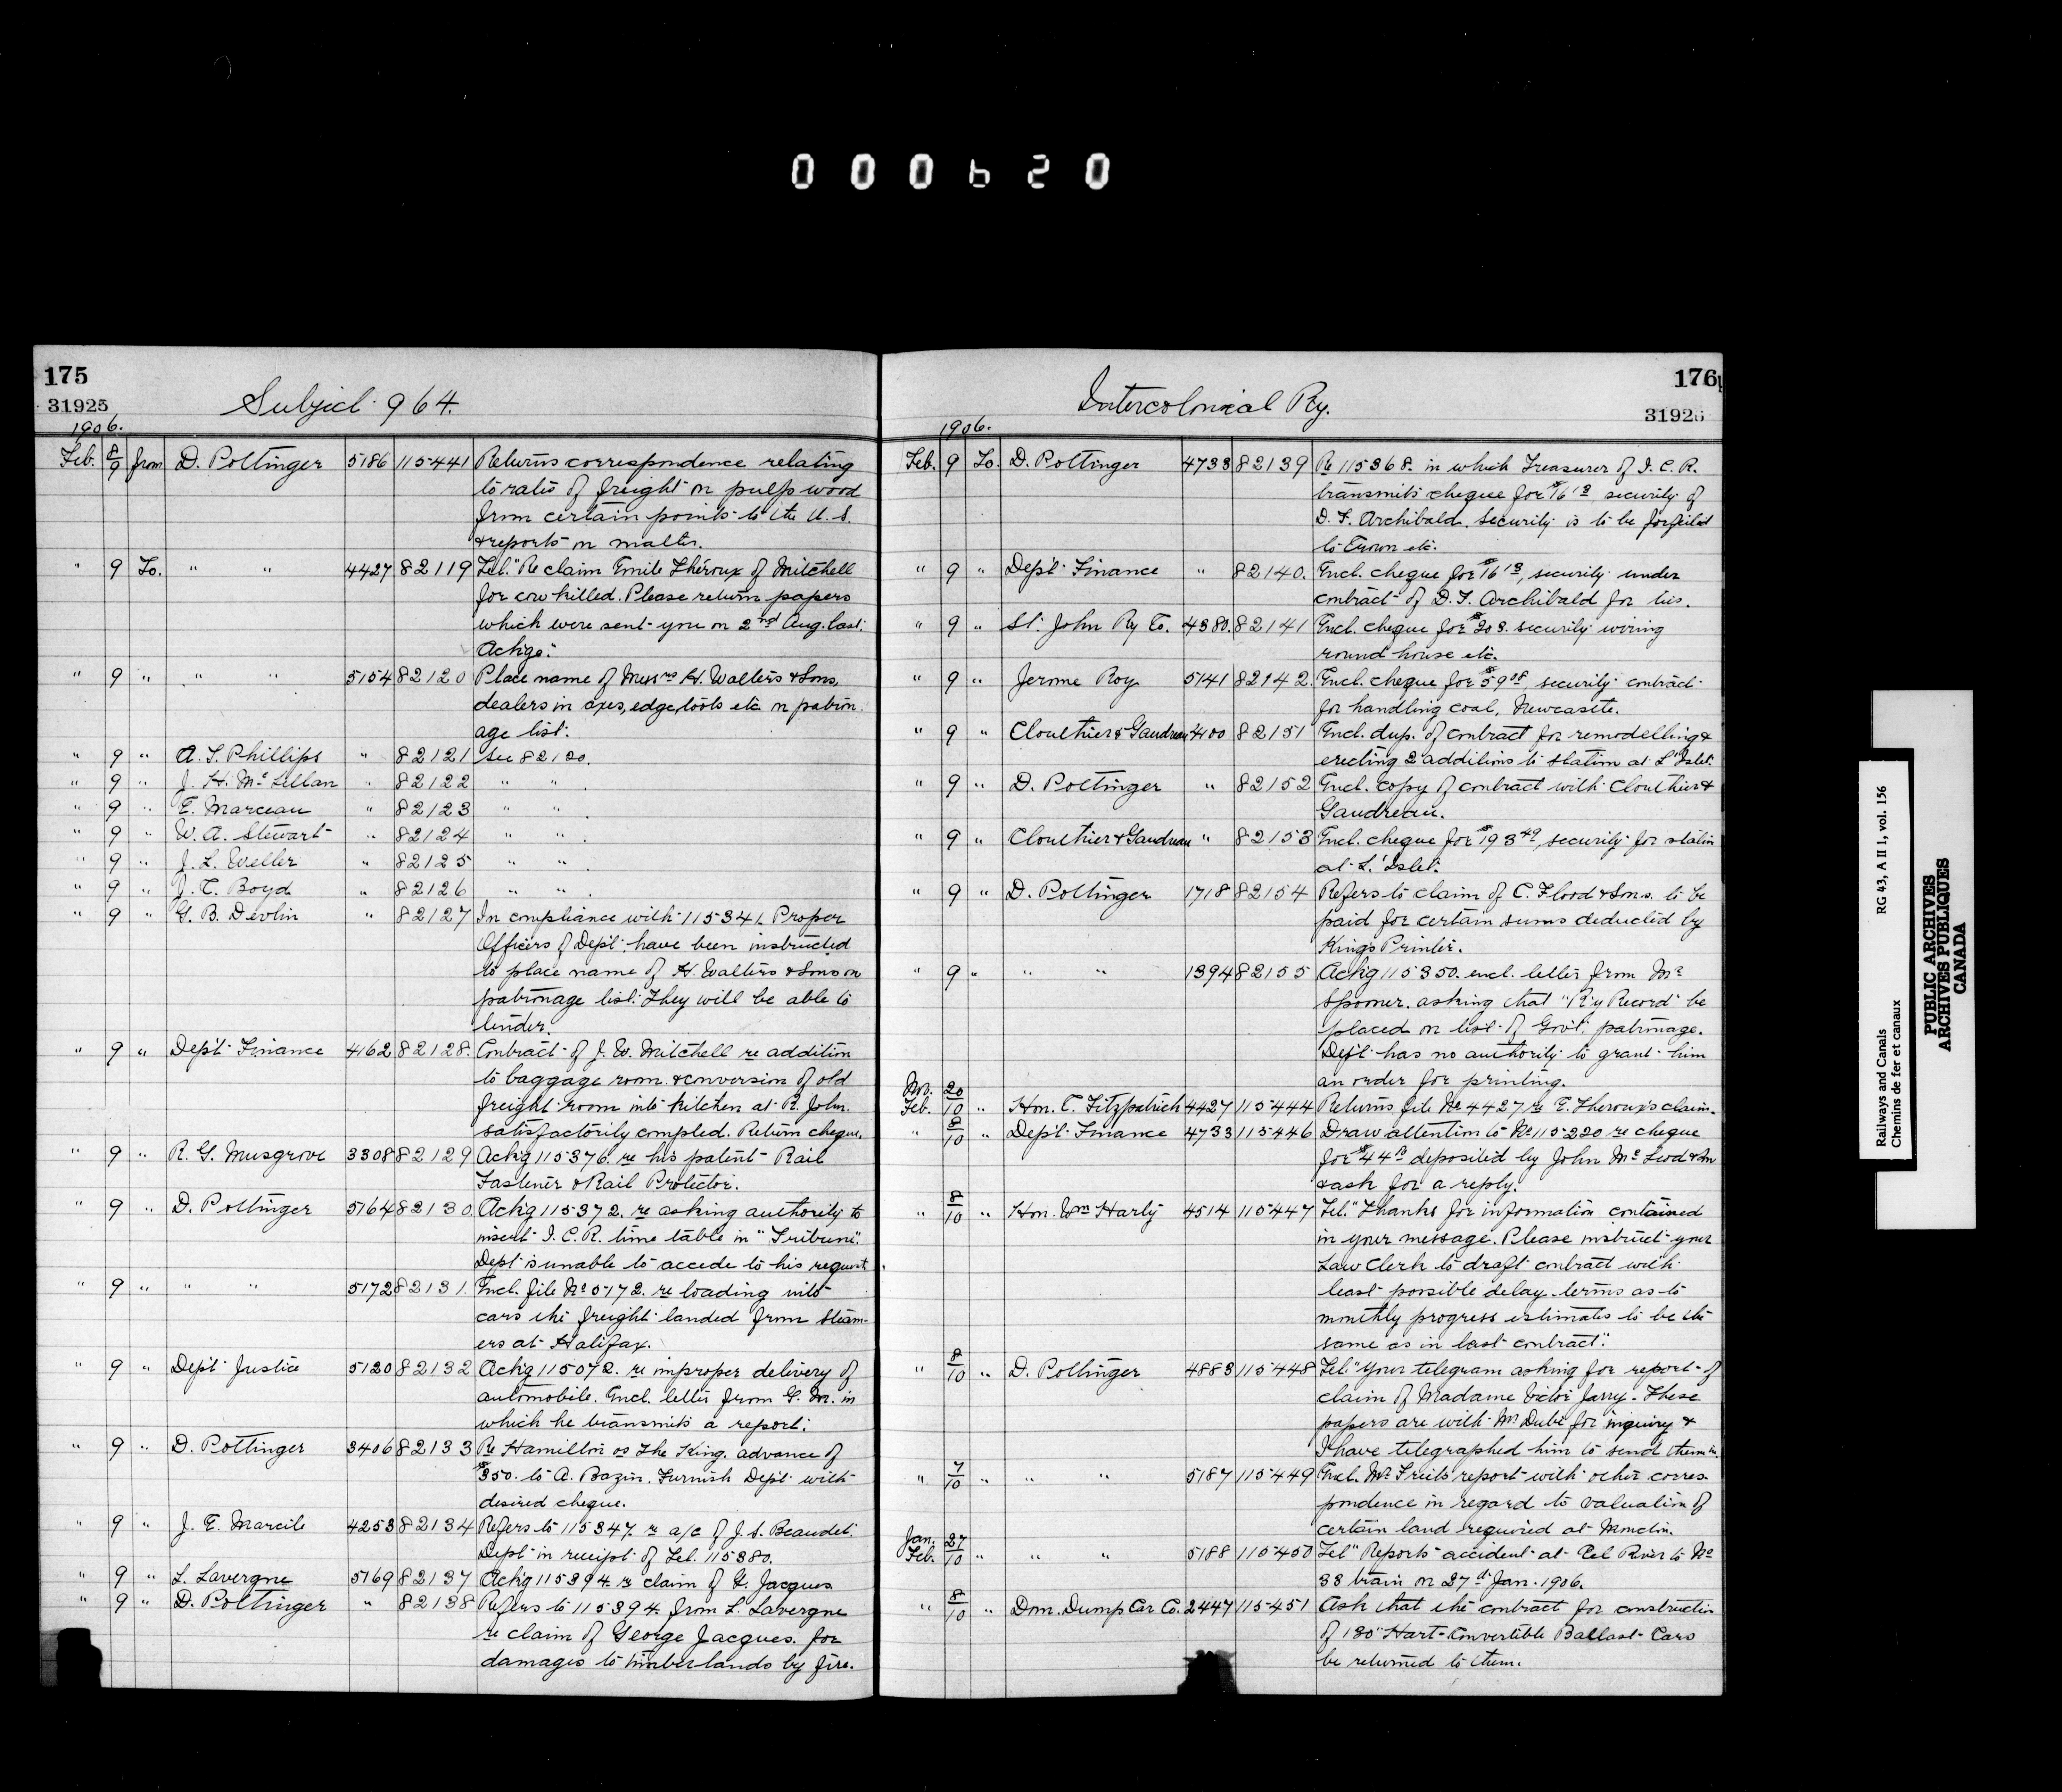 000620
175
31925
Subject 964.
1906.
Feb. 8/9 from D. Pottinger 5186 115441 Returns correspondence relating
to rates of freight on pulp wood
from certain points to the U.S.
& reports on matter.
" 9 To. " " 4427 82119 Tel. "Re claim Emile Théroux of Mitchell
for cow killed. Please return papers
which were sent you on 2nd Aug. last.
Ackge."
" 9 " " " 5154 82120 Place name of Messrs H. Walters & Sons,
dealers in axes, edge tools etc on patron
age list.
" 9 " A. S. Phillips " 82121 See 82120.
" 9 " J. H. McLellan " 82122 " " .
" 9 " E. Marceau " 82123 " " .
" 9 " W. A. Stewart " 82124 " " .
" 9 " J. L. Weller " 82125 " " .
" 9 " J. C. Boyd " 82126 " " .
" 9 " G. B. Devlin " 82127 In compliance with 115341. Proper
Officers of Dep't. have been instructed
to place name of H. Walters & Sons on
patronage list. They will be able to
tender.
" 9 " Dep't Finance 4162 82128. Contract of J. W. Mitchell re addition
to baggage room & conversion of old
freight room into kitchen at R. John.
satisfactorily compled. Return cheque.
" 9 " R. G. Musgrove 3308 82129 Ack'g 115376. re his patent Rail
Fastener & Rail Protector.
" 9 " D. Pottinger 5164 82130 Ack'g 115372. re asking authority to
insert I. C. R. time table in "Tribune".
Dept is unable to accede to his request.
" 9 " " " 5172 82131. Encl. file No 5172. re loading into
cars the freight landed from steam-
ers at Halifax.
" 9 " Dep't Justice 5120 82132 Ack'g 115072. re improper delivery of
automobile. Encl. letter from G. M. in
which he transmits a report.
" 9 " D. Pottinger 3406 82133 Re Hamilton vs The King. advance of
$350. to A. Bazin. Furnish Dep't with
desired cheque.
" 9 " J. E. Marcile 4253 82134 Refers to 115347. re a/c of J. S. Beaudet.
Dept in receipt of Tel. 115380.
" 9 " L. Lavergne 5169 82137 Ack'g 115394. re claim of G. Jacques
" 9 " D. Pottinger " 82138 Refers to 115394. from L. Lavergne
re claim of George Jacques. for
damages to timber lands by fire.
176
31926
Intercolonial Ry.
1906.
Feb. 9 To. D. Pottinger 4733 82139 Re 115368. in which Treasurer of I. C. R.
transmits cheque for $16 security of
D. F. Archibald. Security is to be forfeited
to Crown etc.
" 9 " Dep't Finance " 82140. Encl. cheque for $16, security under
contract of D. F. Archibald for ties.
" 9 " St. John Ry Co. 4380. 82141 Encl. cheque for $203. security wiring
round house etc.
" 9 " Jerome Roy 5141 82142. Encl. cheque for $59 08, security contract
for handling coal, Newcastle.
" 9 " Clouthier & Gaudreau 4400 82151 Encl. dup. of contract for remodelling &
erecting 2 additions to station at L'Islet.
" 9 " D. Pottinger " 82152 Encl. copy of contract with Clouthier &
Gaudreau.
" 9 " Clouthier & Gaudreau " 82153 Encl. cheque for $193 49, security for statin
at L'Islet.
" 9 " D. Pottinger 1718 82154 Refers to claim of C. Flood & Sons. to be
paid for certain sums deducted by
Kings Printer.
" 9 " " " 1394 82155 Ack'g 115350. encl. letter from Mr
Spooner. asking that "R'y Record" be
placed on list of Gov't. patronage.
Dep't has no authority to grant him
an order for printing.
Nov. 20
Feb. 10 " Hon. C. Fitzpatrick 4427 115444 Returns file No 4427 re E. Theroux's claim.
" 8/10 " Dep't Finance 4733 115446 Draw attention to No 115220 re cheque
for $44 deposited by John McLeod & Son
& ask for a reply.
" 8/10 " Hon. Wm Harty 4514 115447 Tel. "Thanks for information contained
in your message. Please instruct your
Law Clerk to draft contract with
least possible delay terms as to
monthly progress estimates to be the
same as in last contract."
" 8/10 " D. Pottinger 4883 115448 Tel. "Your telegram asking for report of
claim of Madame Victor Jarry. These
papers are with Mr Dubé for inquiry &
I have telegraphed him to send them in.
" 7/10 " " " 5187 115449 Encl. Mr report with other corres
pondence in regard to valuation of
certain land required at Moncton.
Jan. 27
Feb. 10 " " " 5188 115450 Tel "Reports accident at Eel River to No
33 train on 27th Jan. 1906.
" 8/10 " Dom. Dump Car Co. 2447 115451 Ask that the contract for construction
of 180 "Hart-Convertible Ballast Cars
be returned to them.
Railways and Canals RG 43, A II 1, vol. 156
Chemins de fer et canaux
PUBLIC ARCHIVES
ARCHIVES PUBLIQUES
CANADA